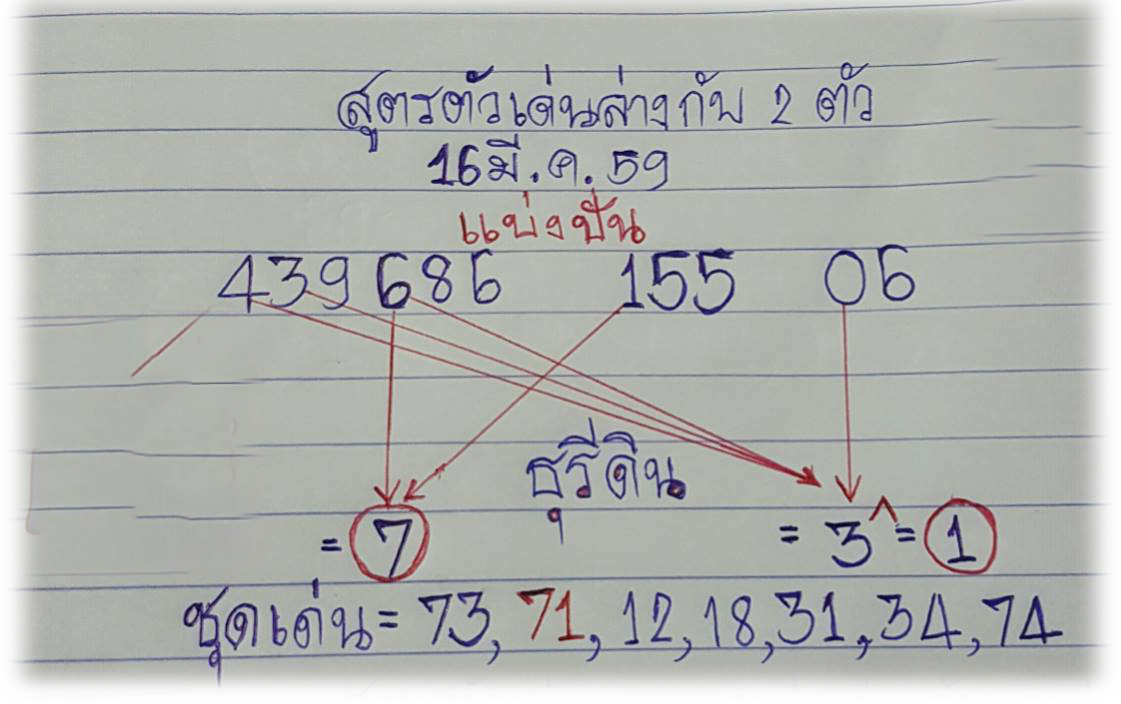 สูตรตัวเด่นล่างกับ 2 ตัว
16มี.ค.59
แบ่งปัน
439686 155 06
ธุรีดิน
= 7 = 3^= 1
ชุดเด่น= 73, 71, 12,18,31,34,74